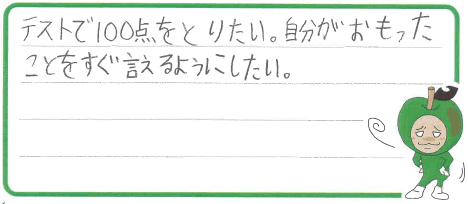 テストで100点をとりたい。自分がおもった
ことをすぐ言えるようにしたい。